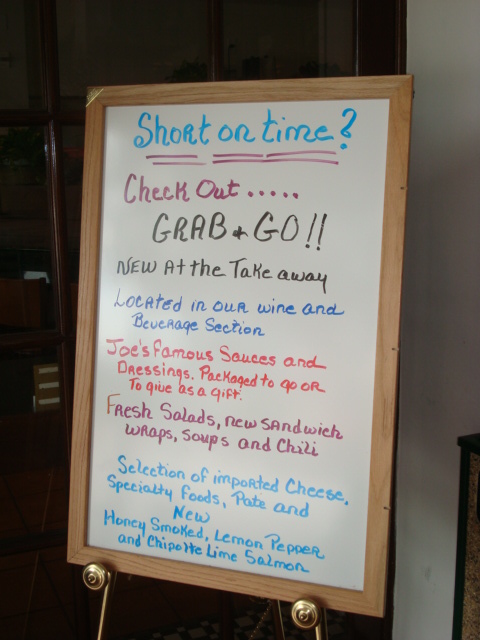 Short on time?
Check Out .....
GRAB + GO!!
NEW At the Take away
Located in our wine and
Beverage Section
Joe's Famous Sauces and
Dressings. Packaged to go or
To give as a gift.
Fresh Salads, new sandwich
wraps, soups and Chili
Selection of imported Cheese,
Specialty foods, Pate and
New
Honey Smoked, Lemon Pepper
and Chipotte Lime Salmon